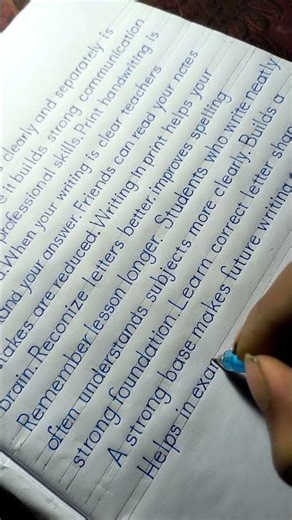 clearly and separately is
it builds strong communication
professional skills. Print handwriting is
When your writing is clear teachers
and your answer. Friends can read your notes
are reduced. Writing in print helps your
brain. Reconize letters better, improves spelling
Remember lesson longer. Students who write neatly
often understands subjects more clearly. Builds a
strong foundation. Learn correct letter shap
A strong base makes future writing
Helps in exar